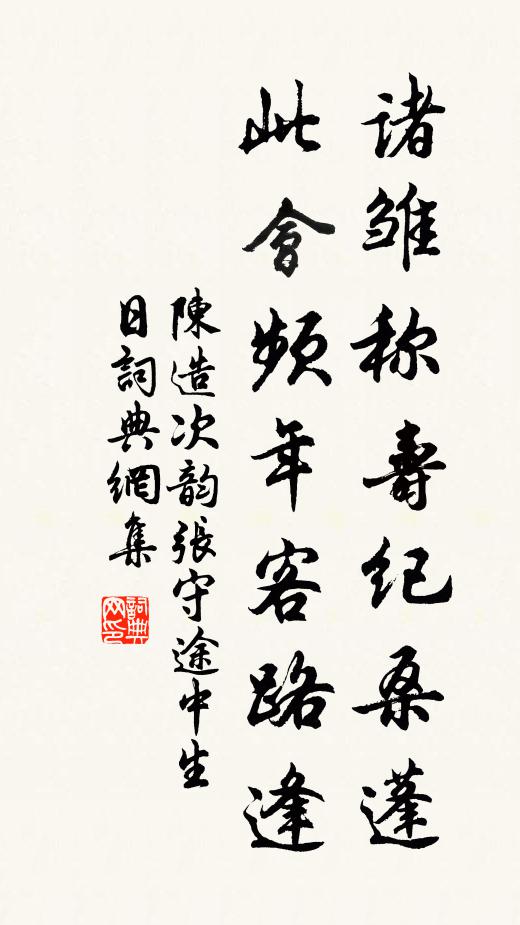 諸雏称壽纪桑蓬
此會頻年客路逢
陳造次韵張守途中生
日詞典網集
詞典
网印